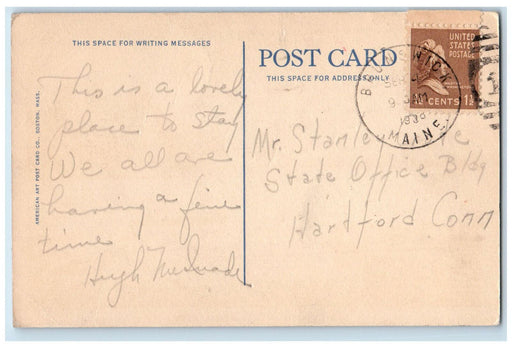 THIS SPACE FOR WRITING MESSAGES
This is a lovely
place to stay
We all are
having a fine
time
Hugh
AMERICAN ART POST CARD CO., BOSTON, MASS.
POST CARD
THIS SPACE FOR ADDRESS ONLY
UNITED
STATES
POSTAGE
1½ CENTS 1½
BRUNSWICK
MAINE
Mr. Stanley
State Office Bldg
Hartford Conn